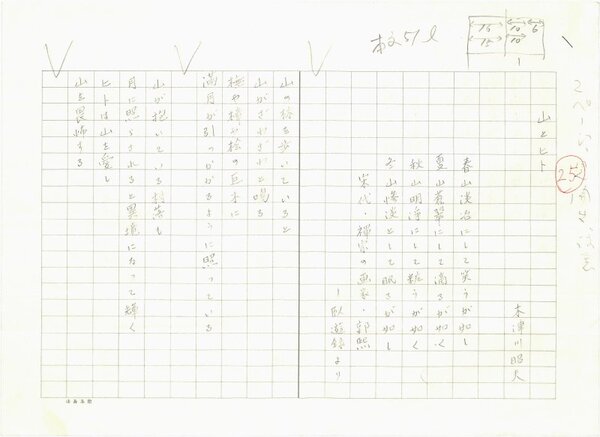 本文 51ℓ
15
10
6
15
10
25
山とヒト
木津川昭夫
春山淡冶にして笑うが如し
夏山蒼翠にして滴るが如く
秋山明浄にして粧うが如く
冬山惨淡として眠るが如し
宋代・禅宗の画家・郭煕
ー臥遊録より
山の径を歩いていると
山がざわざわと鳴る
満月が引っかかるように照っている
山が抱いている村落も
月に照らされると異境になって輝く
ヒトは山を愛し
山を畏怖する